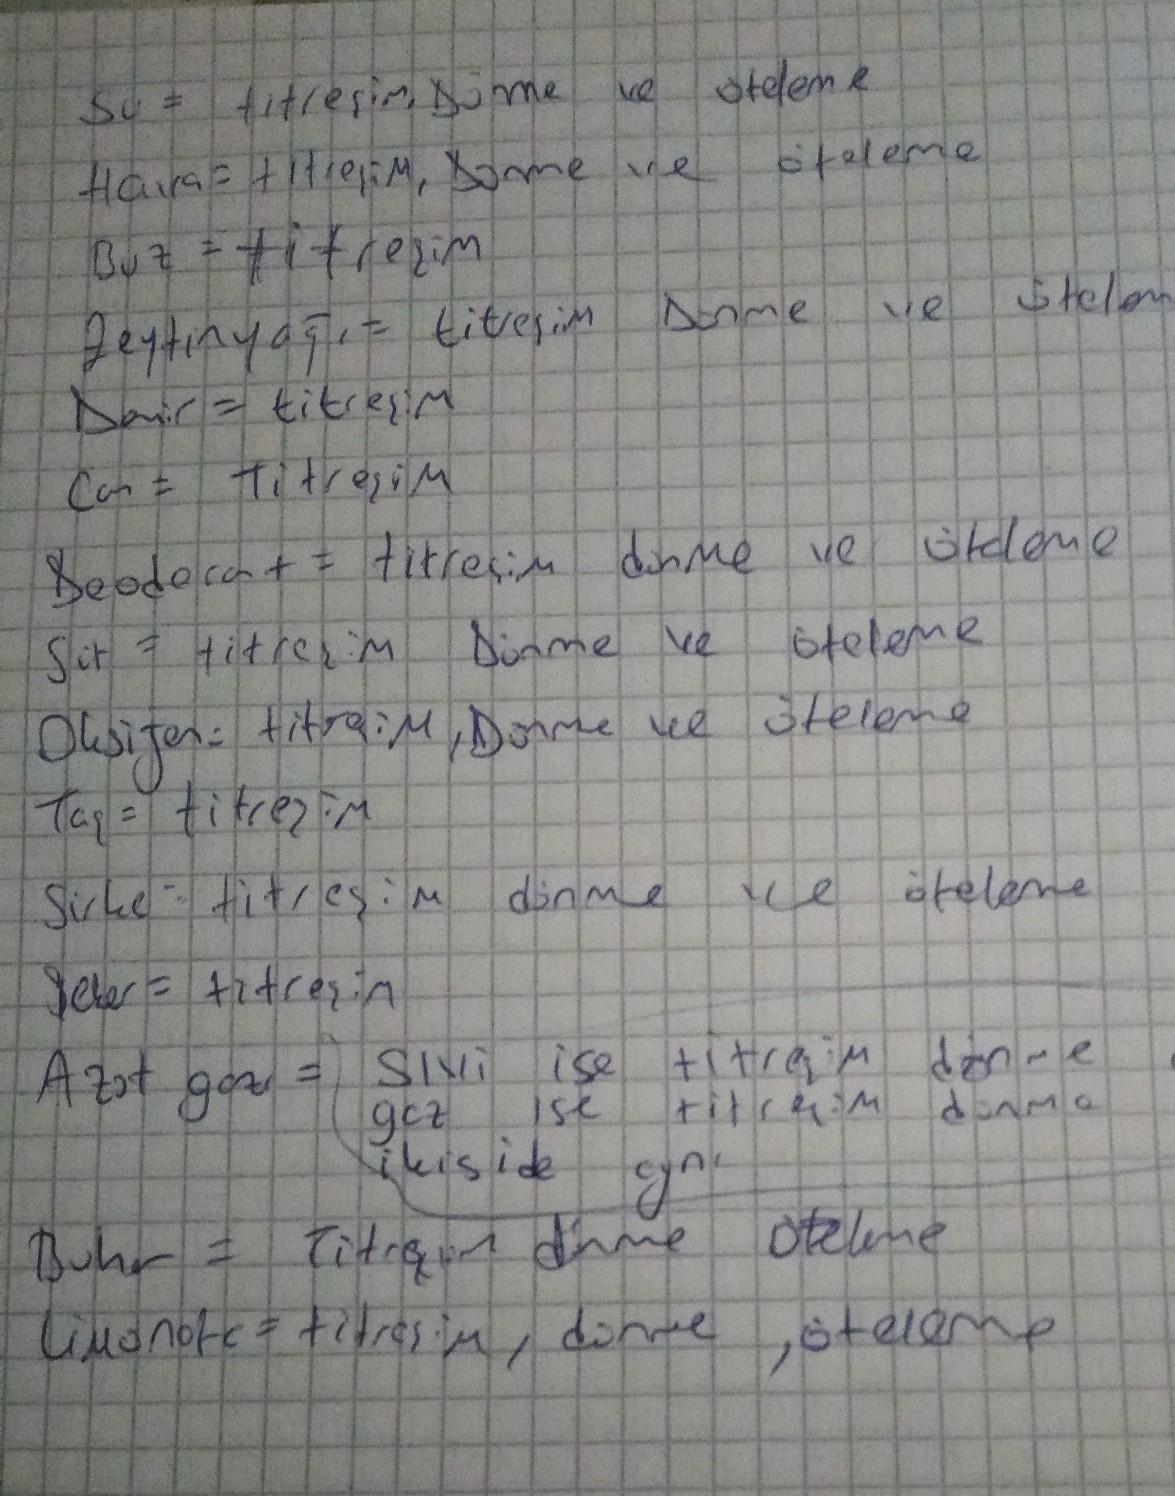 Su = titreşim, Dönme ve öteleme
Hava = titreşim, Dönme ve öteleme
Buz = titreşim
Zeytinyağı = titreşim Dönme ve ötelem
Demir = titreşim
Cam = Titreşim
Deodorant = titreşim dönme ve öteleme
Süt = titreşim Dönme ve öteleme
Oksijen = titreşim, Dönme ve öteleme
Taş = titreşim
Sirke = titreşim dönme ve öteleme
Şeker = titreşim
Azot gazı = Sıvı ise titreşim dönme
gaz ise titreşim dönme
ikiside aynı
Buhar = Titreşim dönme öteleme
Limonata = titreşim, dönme, öteleme